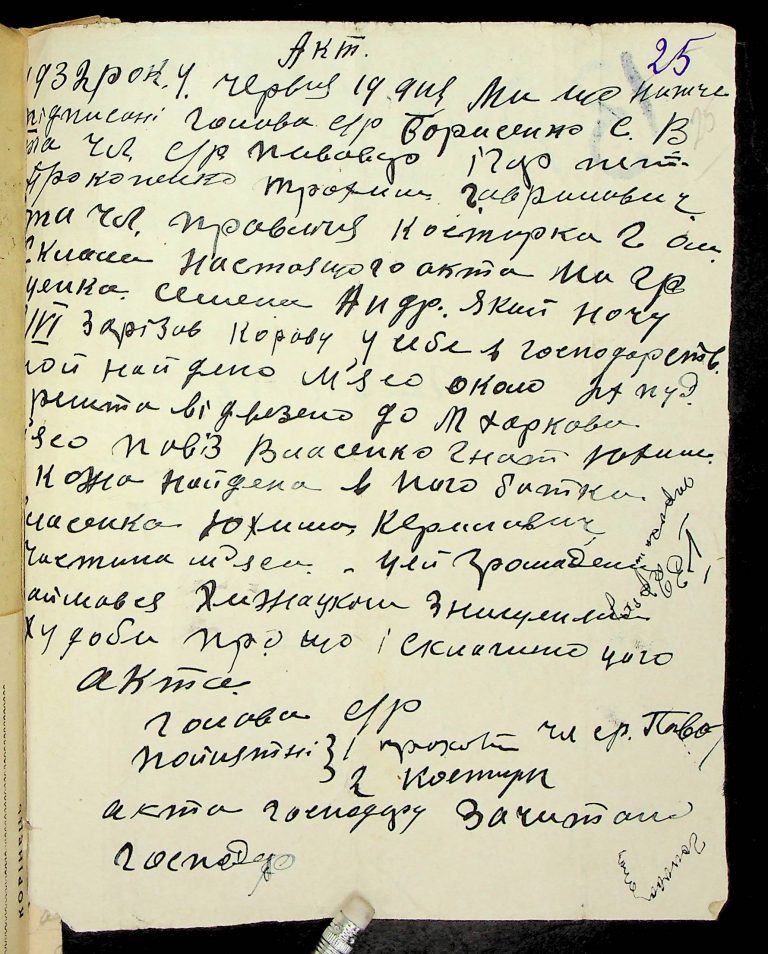 25
Акт.
1932 рок. У червня 19 дня Ми що нижче
підписані голова с/р Борисенко С. В
та чл с/р
Прокопенко Трохим Гаврилович
та чл. правління Костирка Г
Склали настоящого акта на гр
Семена Андр. який ночу
VI зарізав корову у себе в господарств.
найдено м'ясо около пуд.
решта відвезено до М Харкова
м'ясо повіз Власенко Гнат Юхим.
кожа найдена в його батька
Власенка Юхима Кирилович
частина м'яса. цей громадянин
займався хижацьким знищенням
худоби про що і складено цього
акта.
голова с/р
понятні 1 чл ср.
2 Костирк
акта господару зачитано
господар